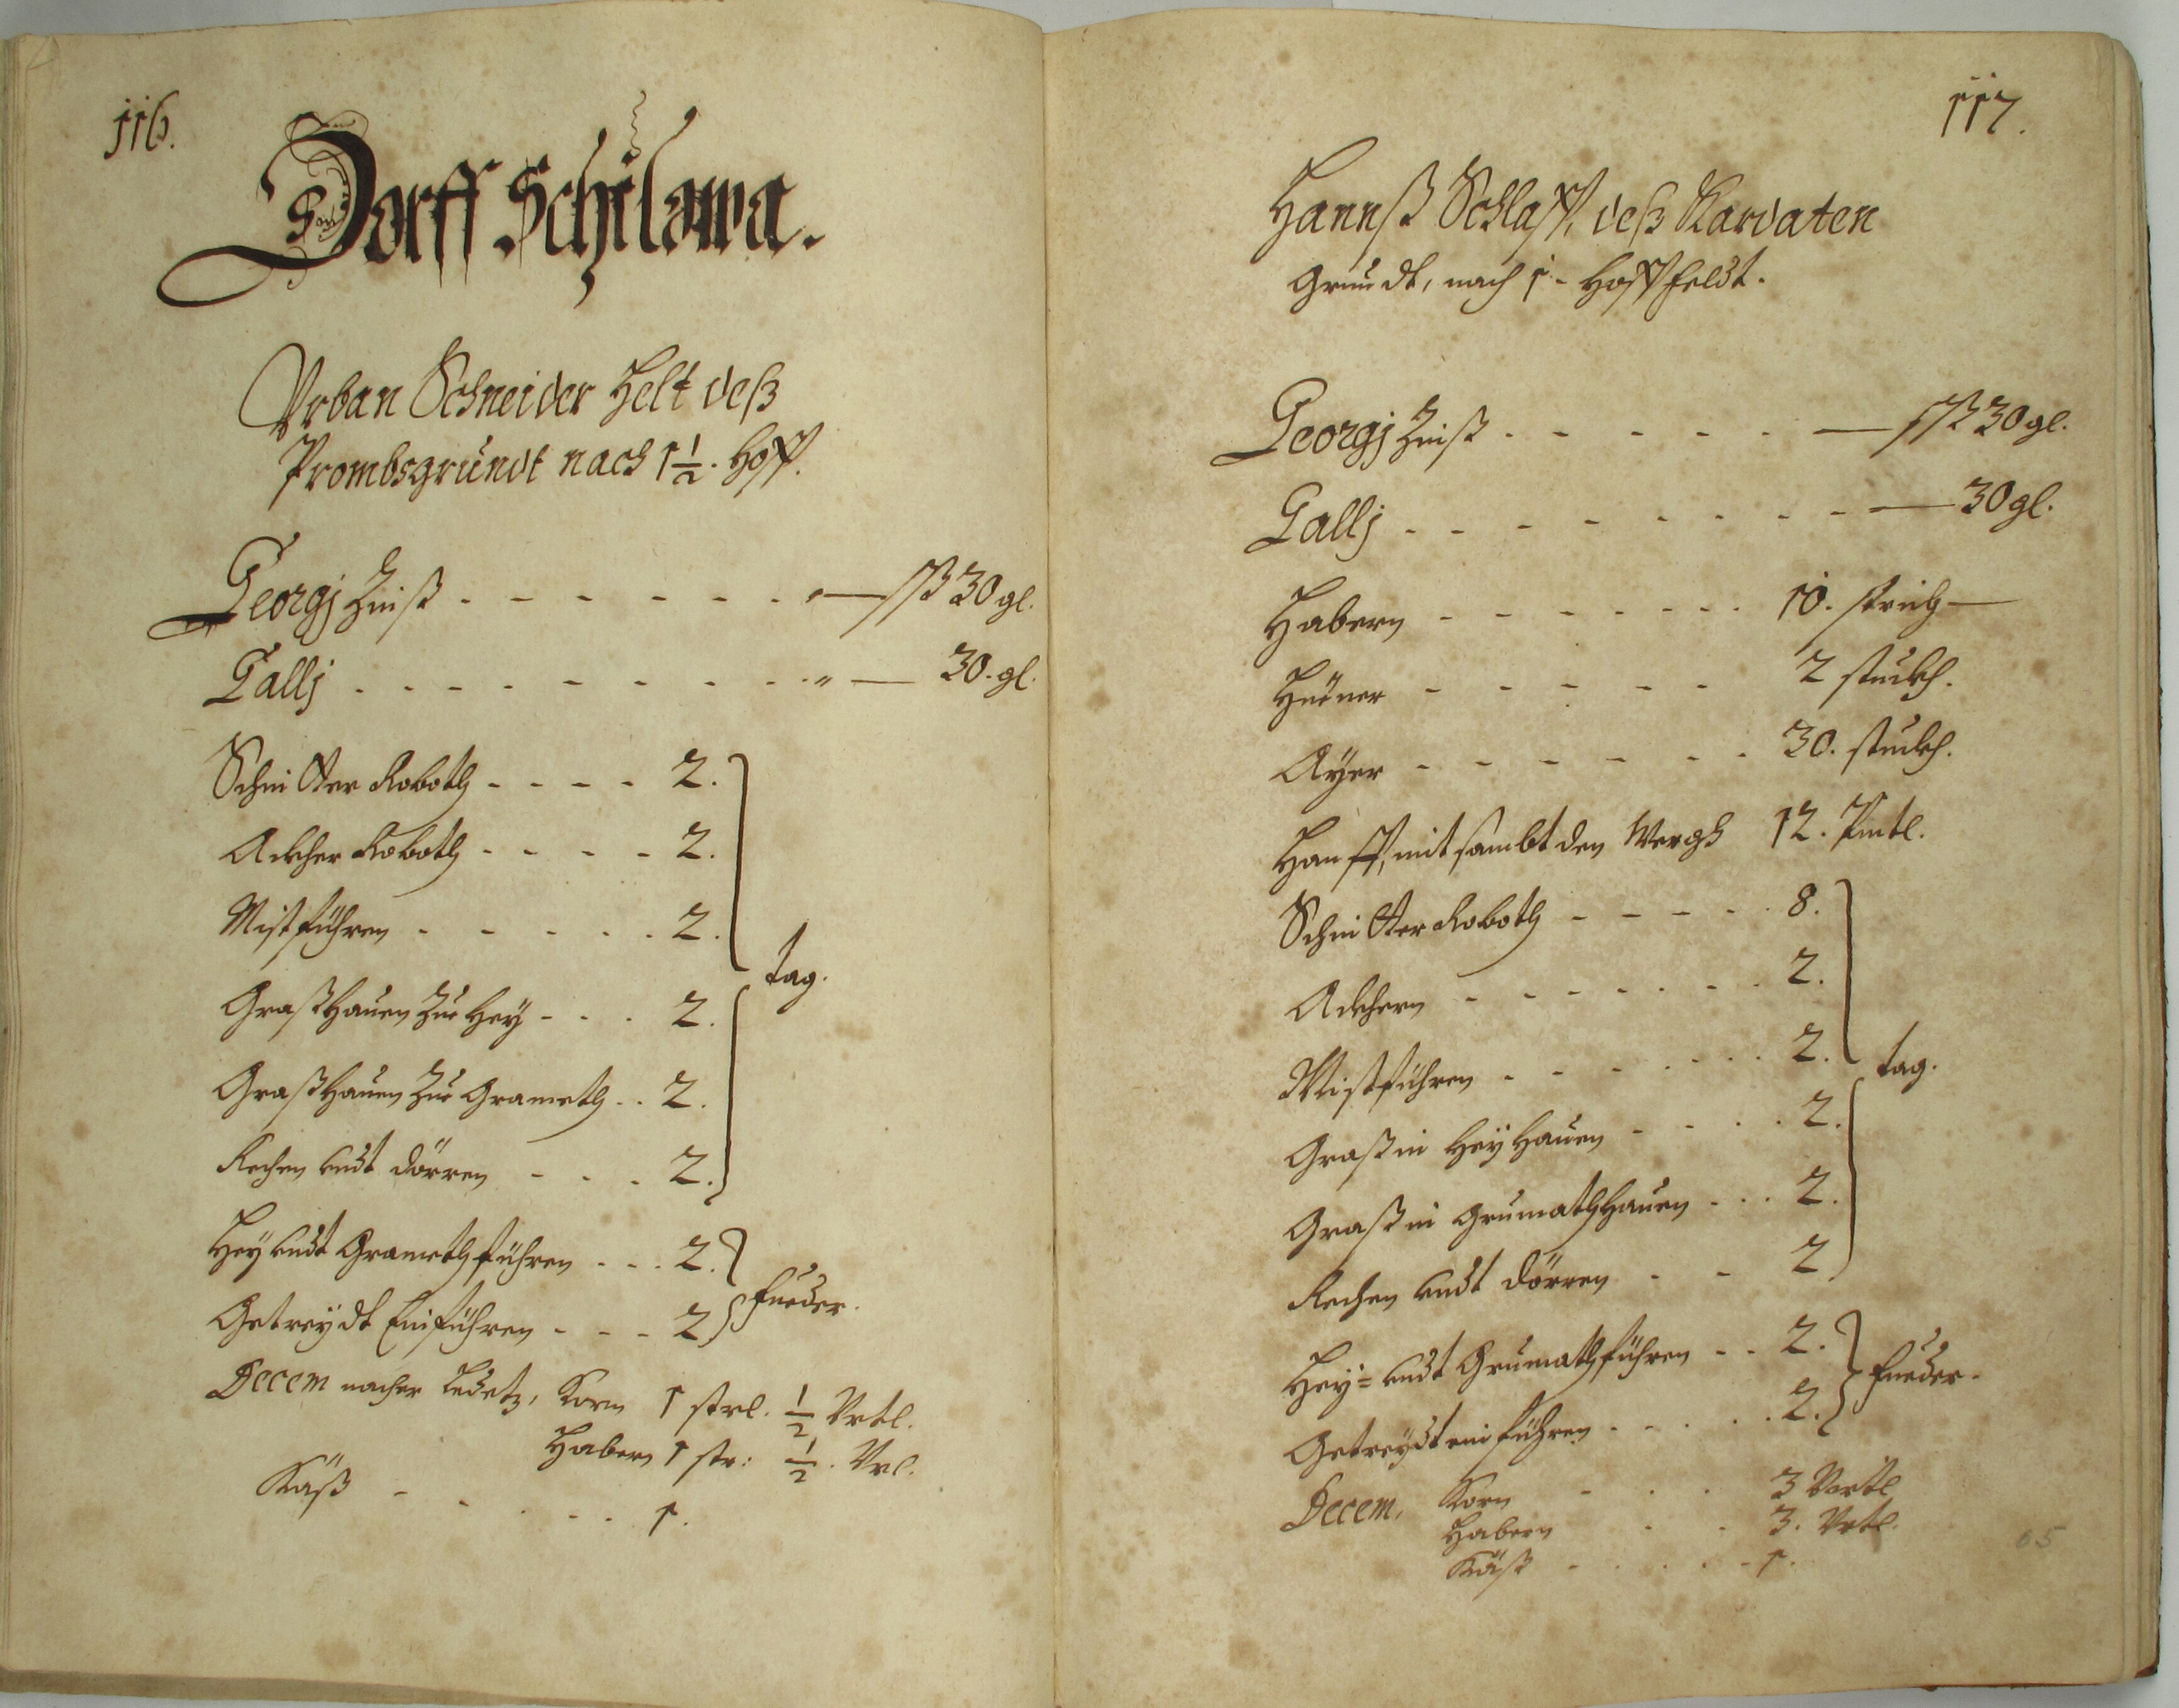 116.
Dorff Schilawa.
Vrban Schneider Helt deß
Prombsgrundt nach 1 1/2. Hoff.
Georgj Zinß - - - - - - - — 1 ß 30 gl.
Gallj - - - - - - - - - — 30. gl.
Schnitter Roboth - - - - 2.
Ackher Roboth - - - - 2.
Mistführen - - - - - 2.
tag.
Graßhauen zue Hey - - - 2.
Graßhauen zue Grameth - - 2.
Rechen vndt dörren - - - 2.
Hey vndt Gramethführen - - - 2.
Fueder.
Getreydt Einführen - - - 2
Decem nacher Ledetz, Korn 1 strl. 1/2 Vrtl.
Habern 1 str: 1/2. Vrl.
Käß - - - - - 1.
117.
Hannß Schlaff, deß Kardaten
Grundt, nach 1. Hoff Feldt.
Georgj Zinß - - - - - - — 1 ß 30 gl.
Gallj - - - - - - - - — 30 gl.
Habern - - - - - - 10. strich —
Hüener - - - - - 2 stuckh.
Ayer - - - - - - 30. stuckh.
Hanff, mit sambt den Wergh 12. Pintl.
Schnitter Roboth - - - - - 8.
Ackhern - - - - - - - 2.
Mistführen - - - - - - 2.
tag.
Graß in Hey Hauen - - - - 2.
Graß in Grumath Hauen - - - 2.
Rechen vndt dörren - - 2
Hey= vndt Grumathführen - - 2.
Fueder.
Getreydt einführen - - - - - 2.
Decem, Korn - - - 3 Vertl
Habern - - 3. Vrtl.
Käß - - - - - 1.
65